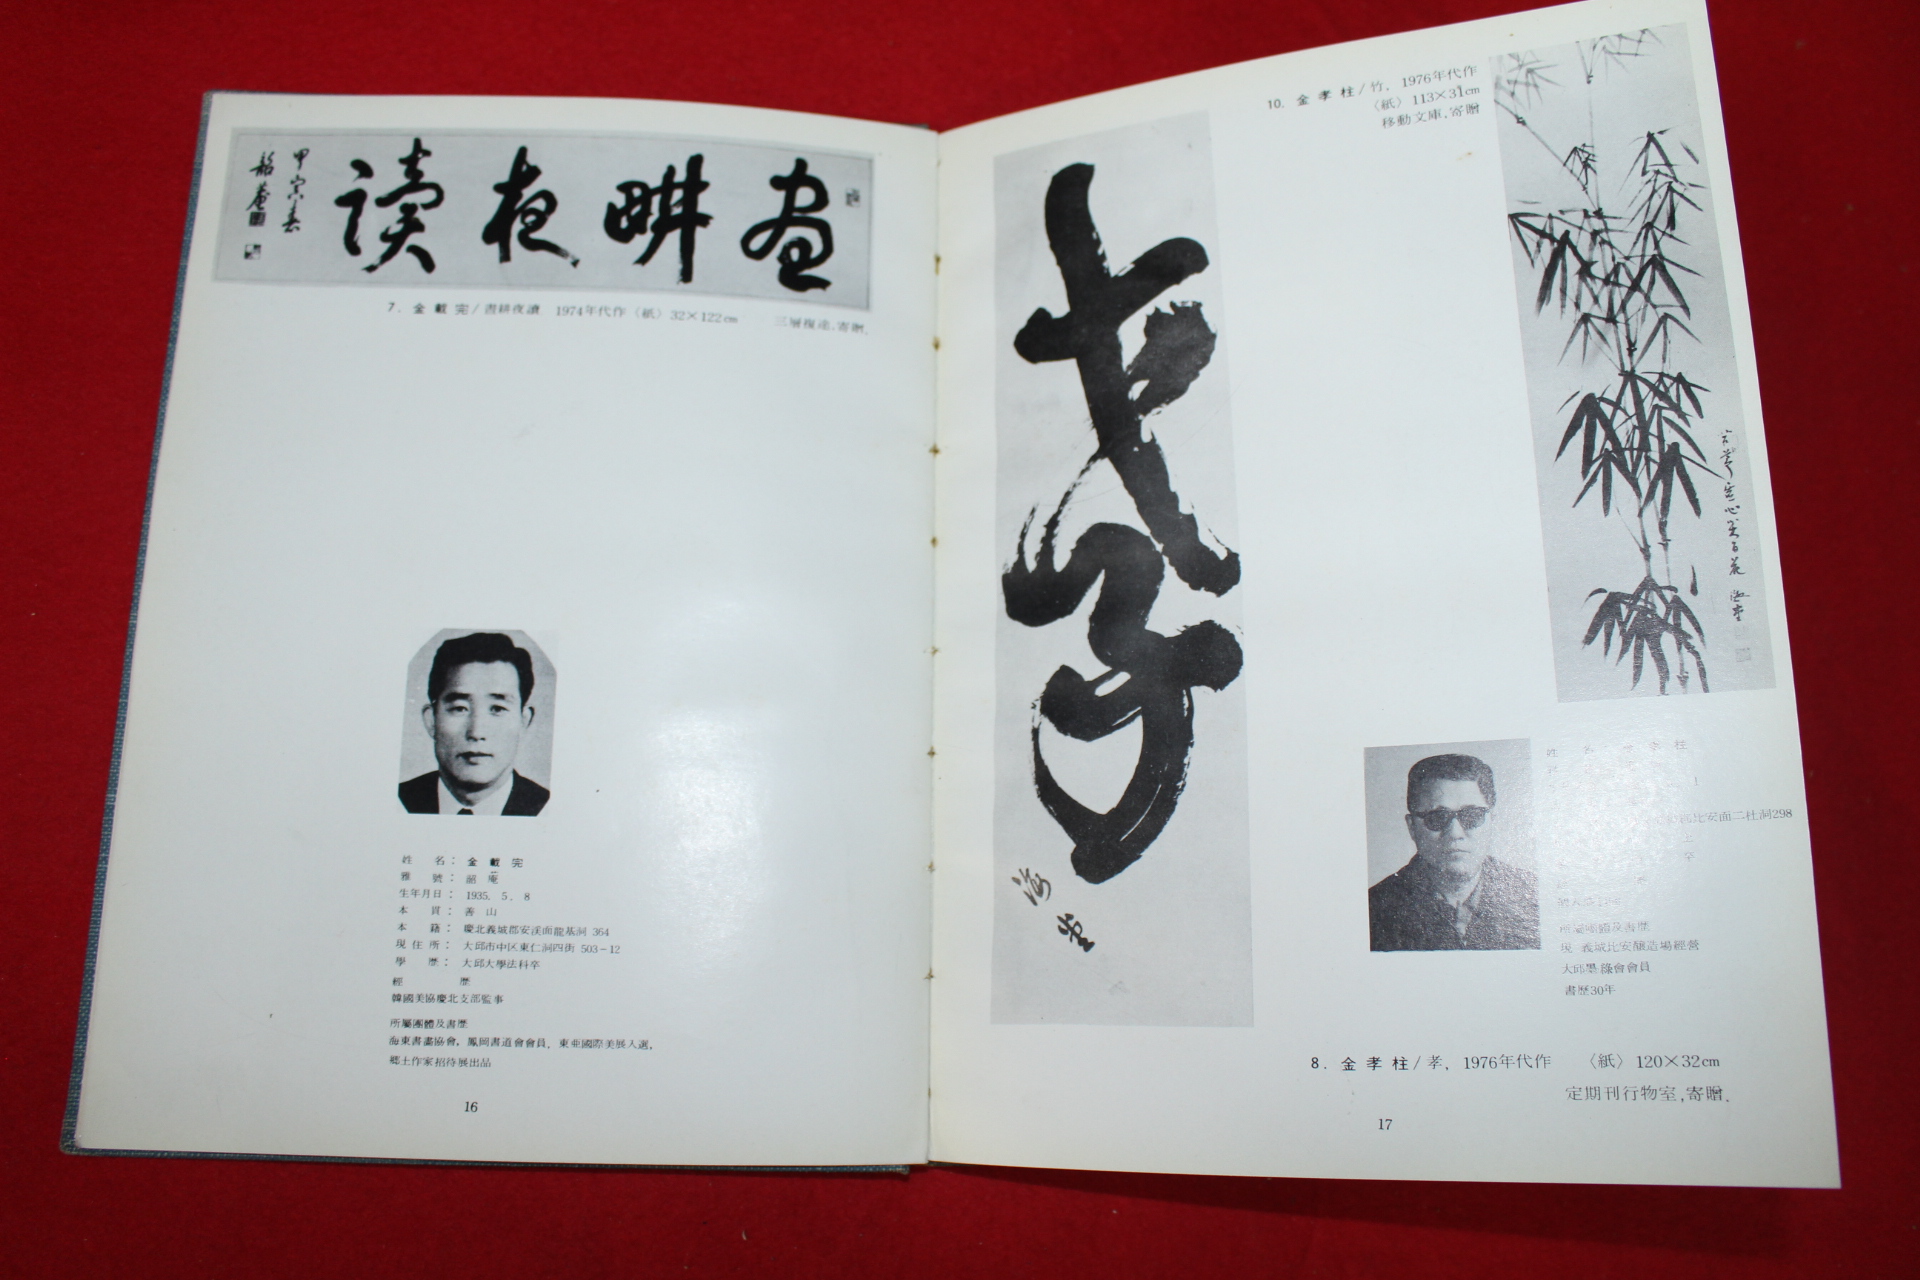 晝耕夜讀
甲寅春
韶菴
7. 金載完/晝耕夜讀. 1974年代作〈紙〉32×122㎝ 三層複道.寄贈.
姓名: 金載完
雅號: 韶庵
生年月日: 1935. 5. 8
本貫: 善山
本籍: 慶北義城郡安溪面龍基洞 364
現住所: 大邱市中区東仁洞四街 503-12
學歷: 大邱大學法科卒
經歷
韓國美協慶北支部監事
所屬團體及書歷
海東書畵協會, 鳳岡書道會會員, 東亜國際美展入選,
鄕土作家招待展出品
16
10. 金孝柱/竹, 1976年代作
〈紙〉113×31㎝
移動文庫.寄贈
孝
海堂
海堂
姓名 金孝柱
比安面二杜洞298
卒
所屬團體及書歷
現 義城比安釀造場經營
大邱墨緣會會員
書歷30年
8. 金孝柱/孝, 1976年代作 〈紙〉120×32㎝
定期刊行物室,寄贈.
17